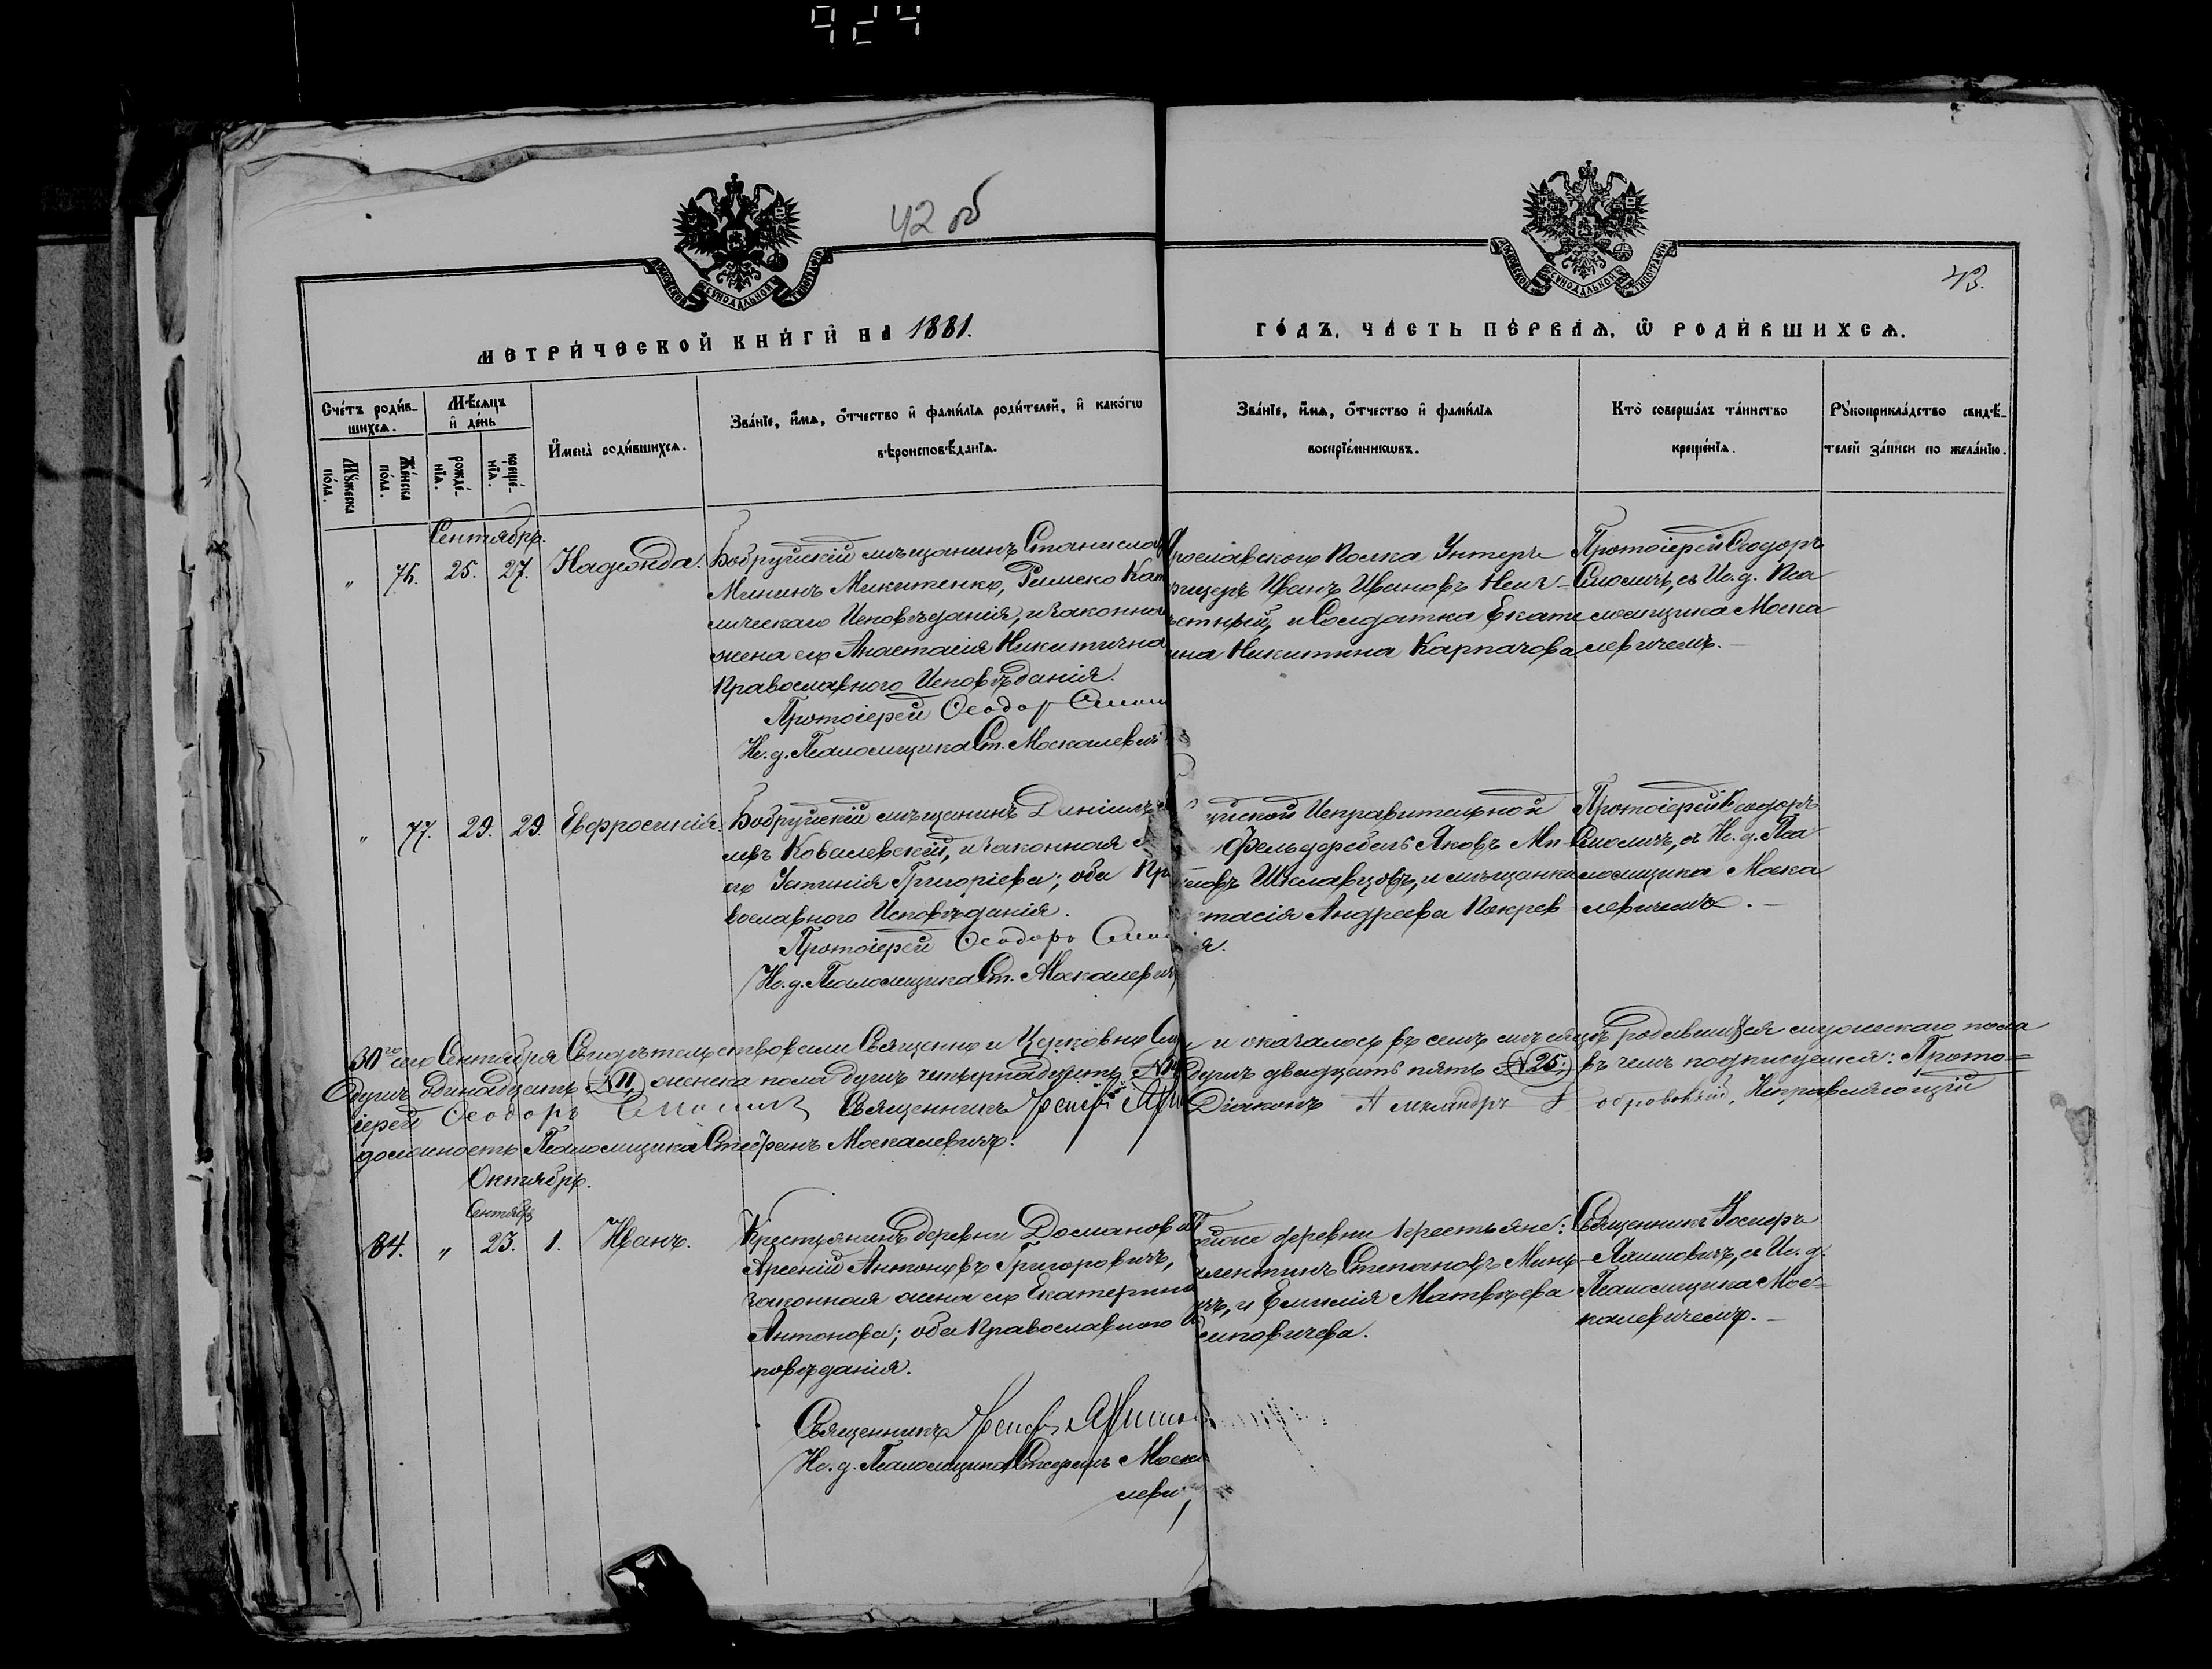 924
42 об
43.
МОСКОВСКОЙ СѴНОДАЛЬНОЙ ТИПОГРАФІИ
МОСКОВСКОЙ СѴНОДАЛЬНОЙ ТИПОГРАФІИ
МЕТРИ́ЧЕСКОЙ КНИ́ГИ НА 1881.
ГО́ДЪ, ЧА́СТЬ ПЕ́РВАѦ, Ѽ РОДИ́ВШИХСѦ.
Сче́тъ роди́в-
шихсѧ.
Мꙋ́жеска по́ла.
Же́нска по́ла.
Мѣ́сѧцъ
и҆ де́нь
рожде́-нїѧ.
креще́-нїѧ.
И҆мена̀ роди́вшихсѧ.
Зва́нїе, и҆́мѧ, ѻ҆́тчество и҆ фами́лїѧ роди́телей, и҆ како́гѡ
вѣроисповѣ́данїѧ.
Зва́нїе, и҆́мѧ, ѻ҆́тчество и҆ фами́лїѧ
воспрїе́мникѡвъ.
Кто̀ соверша́лъ та́инство
креще́нїѧ.
Рꙋкоприкла́дство свидѣ́-
телей за́писи по жела́нїю.
Сентябрь.
" 76. 25. 27. Надежда.
Бобруйскій мѣщанинъ Станислав
Мининъ Микитенко, Римско Кат
лическаго Исповѣданія, и законная
жена его Анастасія Никитична
Православного Исповѣданія.
Протоіерей Ѳеодор
Ис. д. Псаломщика Ст. Москалевич
Ярославского Полка Унтеръ
рицеръ Иванъ Ивановъ
и Солдатка Екате
ина Никитина Карпачова
Протоіерей Ѳеодоръ
Смоличъ, съ Ис. д. Пса
ломщика Моска
левичемъ.–
" 77. 29. 29. Евфросинія.
Бобруйскій мѣщанинъ Даніилъ
Ковалевскій, и законная
его Устинія Григоріева; оба Пра
вославного Исповѣданія.
Протоіерей Ѳеодоръ
Ис. д. Псаломщика Ст. Москалевич
уйской Исправительной
Фельдфебель Яковъ Ми
Шклавцовъ, и мѣщанка
стасія Андреева Покрев
я.
Протоіерей Ѳеодоръ
Смоличъ, съ Ис. д. Пса
ломщика Моска
левичемъ.–
30го сего Сентября Свидѣтельствовали Священно и Церковно и оказалось въ семъ мѣсяцѣ родившихся мужескаго пола
душъ одинадцать №11, женска пола душъ четырнадцать №14 душъ двадцать пять №25; въ чемъ подписуемся: Прото=
іерей Ѳеодоръ Смоличъ Священникъ Діаконъ Александръ Исправляющій
должность Псаломщика Стефанъ Москалевичъ.
Октябрь.
Сентябрь
84. " 23. 1. Иванъ.
Крестьянинъ деревни Доманова
Арсеній Антоновъ Григоровичъ,
законная жена его Екатерина
Антонова; оба Православного Ис
повѣданія.
Священникъ
Ис. д. Псаломщика Стефанъ Моска
леви
тойже деревни крестьяне:
алентинъ Степановъ Мино
и Емилія Матвѣева
Священникъ Іосифъ
съ Ис. д.
Псаломщика Мос=
калевичемъ.–